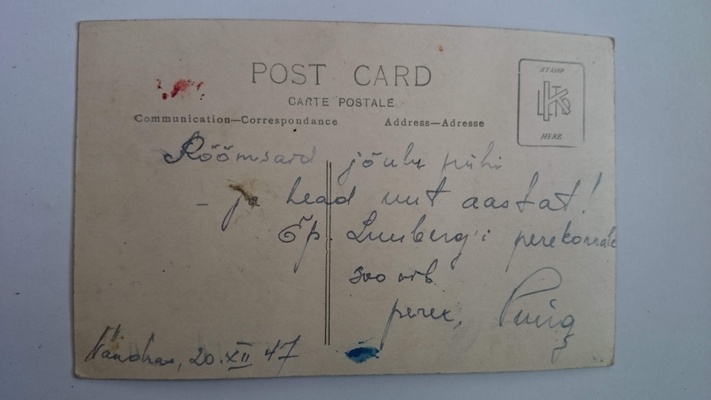 POST CARD
CARTE POSTALE
Communication—Correspondance Address—Adresse
STAMP
HERE
Rõõmsaid jõulu pühi
– ja head uut aastat!
Õp. Lumberg'i perekonnale
soovib
perek.
20.XII 47